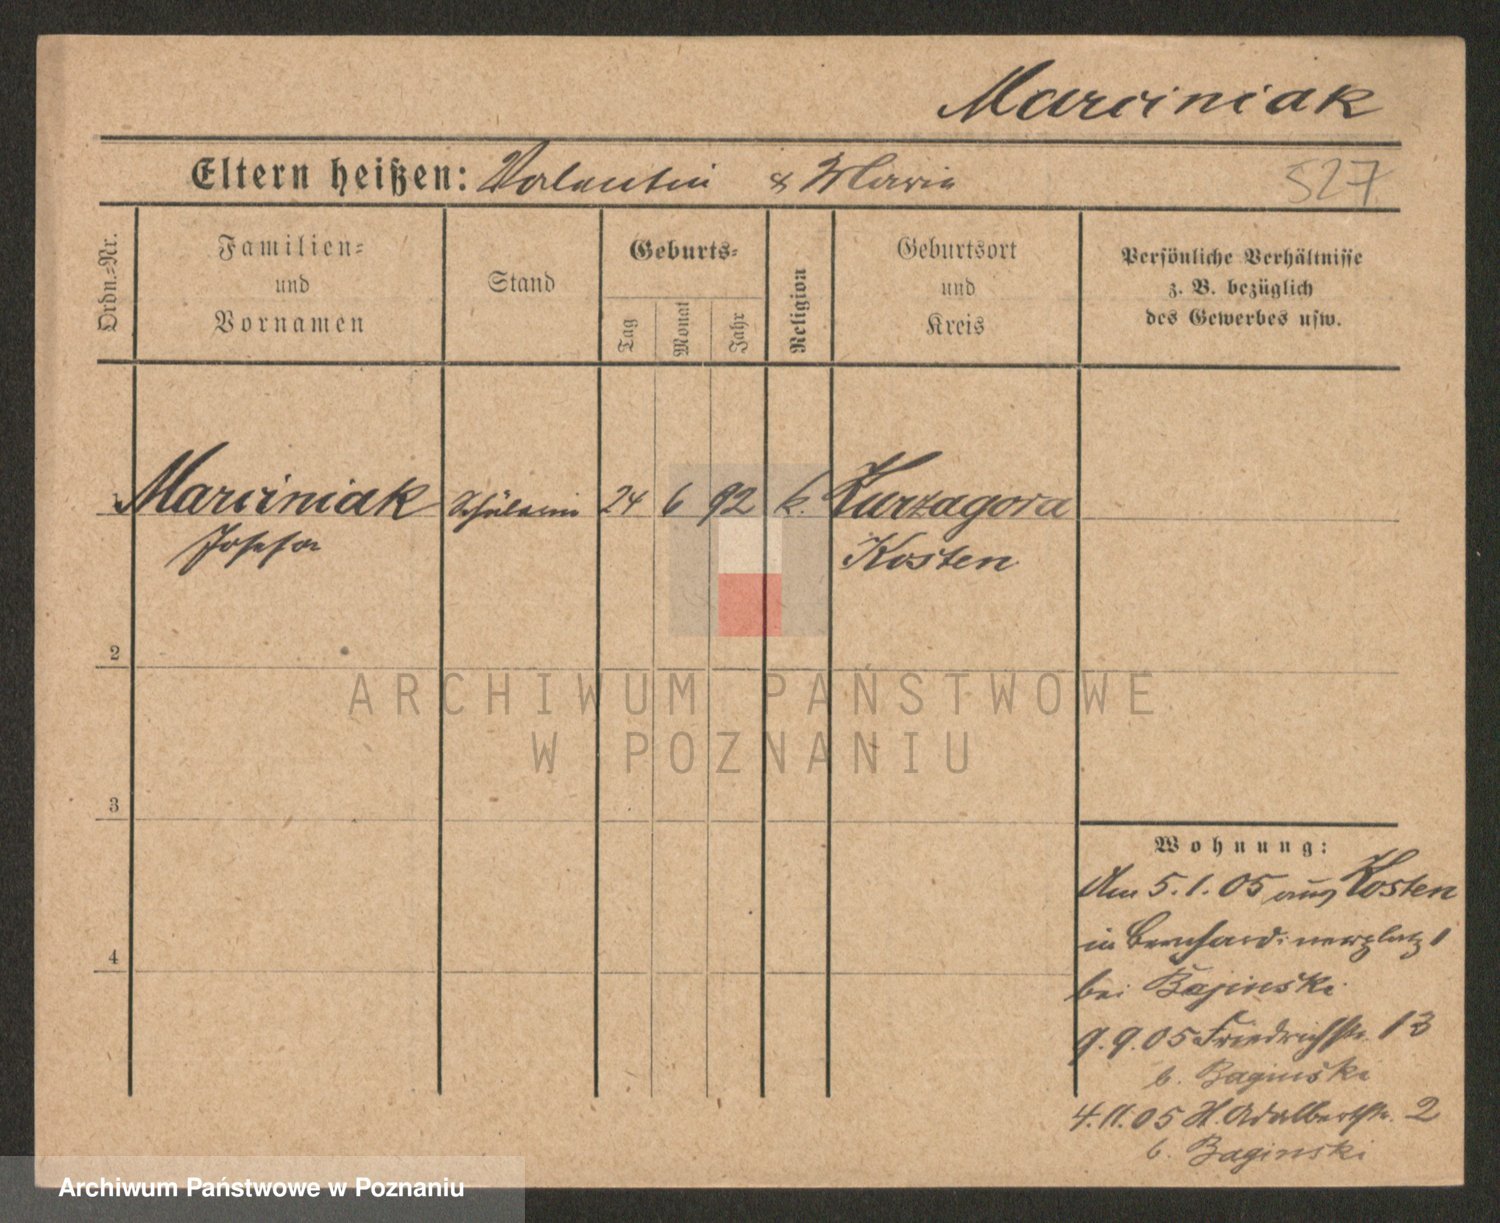 Marciniak
Eltern heißen: Valentin & Marie
527.
Ordn.=Nr.
Familien=
und
Vornamen
Stand
Geburts=
Tag
Monat
Jahr
Religion
Geburtsort
und
Kreis
Persönliche Verhältnisse
z. B. bezüglich
des Gewerbes usw.
1 Marciniak Schülerin 24 6 92 k. Kurzagora
Josefa Kosten
2
ARCHIWUM PAŃSTWOWE
W POZNANIU
3
Wohnung:
Am 5.1.05 aus Kosten
in Bernhardinerplatz 1
bei Bajinski
4
9.9.05 Friedrichstr. 13
b. Baginski
4.11.05 St. Adalbertstr. 2
b. Baginski
Archiwum Państwowe w Poznaniu